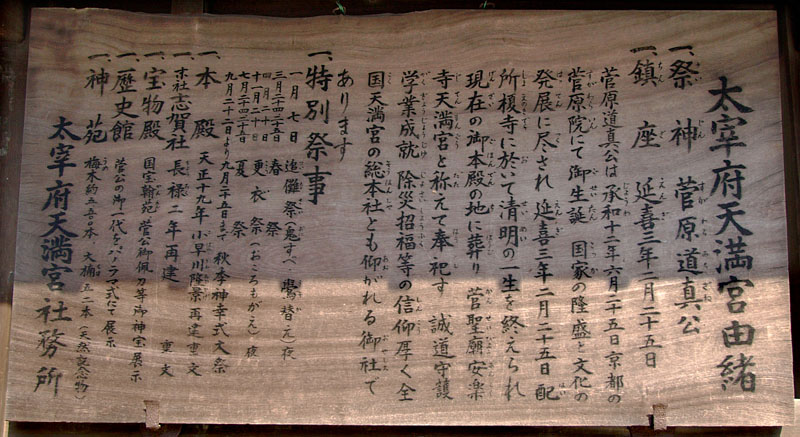 太宰府天満宮由緒
一、祭神 菅原道真公
一、鎮座 延喜三年二月二十五日
菅原道真公は承和十二年六月二十五日京都の
菅原院にて御生誕 国家の隆盛と文化の
発展に尽され 延喜三年二月二十五日 配
所榎寺に於いて清明の一生を終えられ
現在の御本殿の地に葬り 菅聖廟安楽
寺天満宮と称えて奉祀す 誠道守護
学業成就 除災招福等の信仰厚く全
国天満宮の総本社とも仰がれる御社で
あります
一、特別祭事
一月七日 追儺祭(鬼すべ 鷽替え)夜
三月二十四・二十五日 春祭
四月・十一月二十日 更衣祭(おころもがえ)夜
七月二十四・二十五日 夏祭
九月二十二日より九月二十五日まで 秋季神幸式大祭
一、本殿 天正十九年 小早川隆景再建 重文
一、末社志賀社 長禄二年再建 重文
一、宝物殿 国宝翰苑 菅公御佩刀等御神宝展示
一、歴史館 菅公の御一代をパノラマ式にて展示
一、神苑 梅木約五、五〇〇本 大樟五二本(天然記念物)
太宰府天満宮社務所